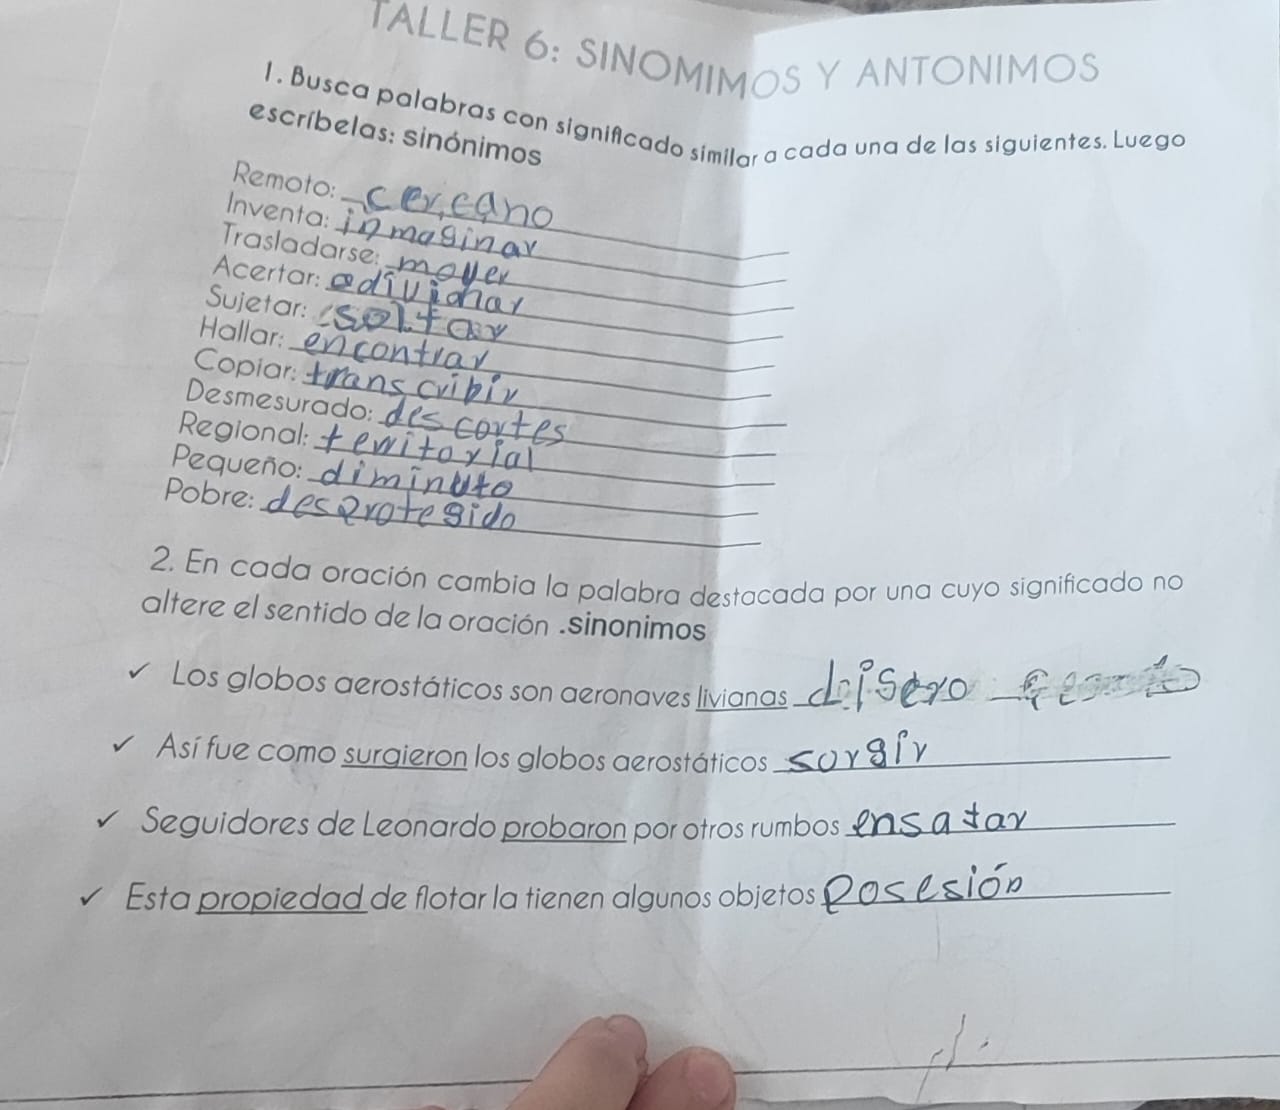 TALLER 6: SINOMIMOS Y ANTONIMOS
1. Busca palabras con significado similar a cada una de las siguientes. Luego
escríbelas: sinónimos
Remoto: cercano
Inventa: inmaginar
Trasladarse: mover
Acertar: adivinar
Sujetar: soltar
Hallar: encontrar
Copiar: transcribir
Desmesurado: descortes
Regional: territorial
Pequeño: diminuto
Pobre: desprotegido
2. En cada oración cambia la palabra destacada por una cuyo significado no
altere el sentido de la oración .sinonimos
✓ Los globos aerostáticos son aeronaves livianas
✓ Así fue como surgieron los globos aerostáticos sorgir
✓ Seguidores de Leonardo probaron por otros rumbos ensatar
✓ Esta propiedad de flotar la tienen algunos objetos posesión